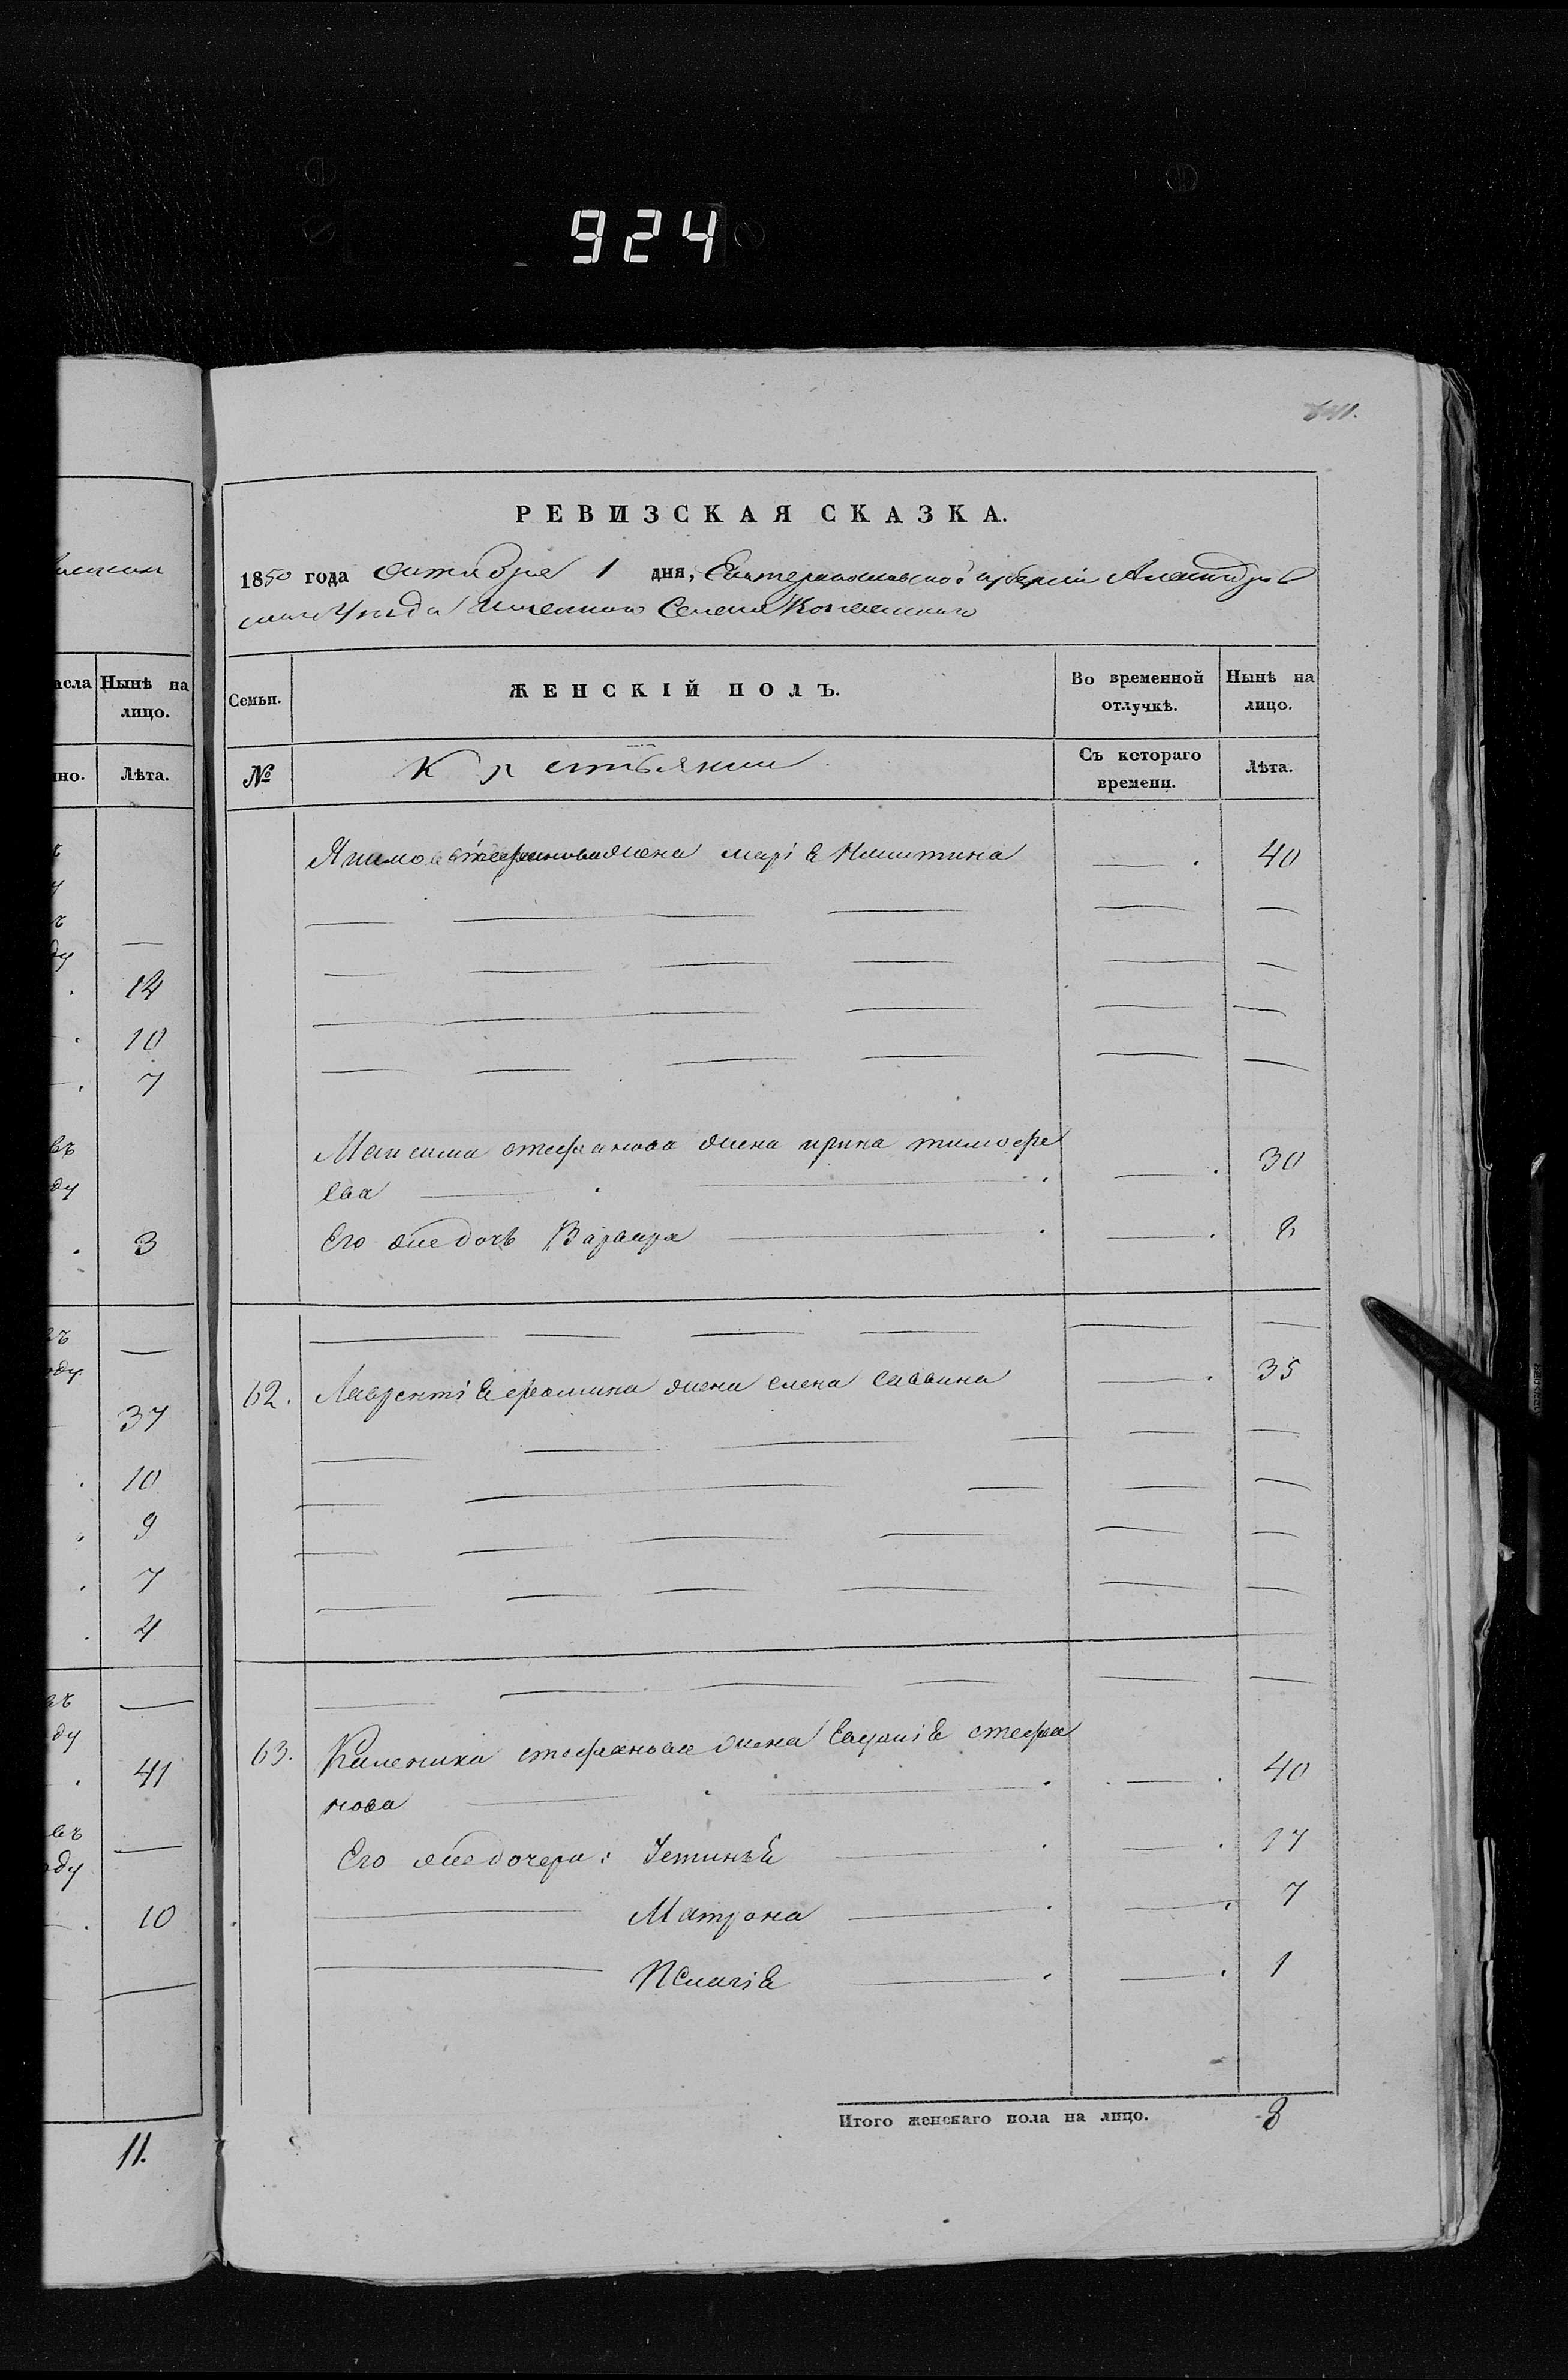 924
641.
РЕВИЗСКАЯ СКАЗКА.
1850 года октября 1 дня, Екатеринославской губерніи Александров
скаго Уезда казеннаго Селенія
асла Нынѣ на лицо.
но. Лѣта.
Семьи. ЖЕНСКІЙ ПОЛЪ. Во временной отлучкѣ. Нынѣ на лицо.
№ Крестьянки Съ котораго времени. Лѣта.
Якимова стефанова жена маріа Никитина — . 40
Максима стефанова жена ирина тимофе
ева — . 30
Его же дочь Варвара — . 8
62. Лаврентіа фомина жена елена саввина — . 35
63. Каленика стефанова жена Евдокіа стефа
нова — . 40
Его же дочери: Устинья — . 17
Матрона — . 7
Пелагіа — . 1
Итого женскаго пола на лицо. 8
ду
14
10
7
въ
ду
3
въ
оду
37
10
9
7
4
въ
ду
41
въ
оду
10
11.